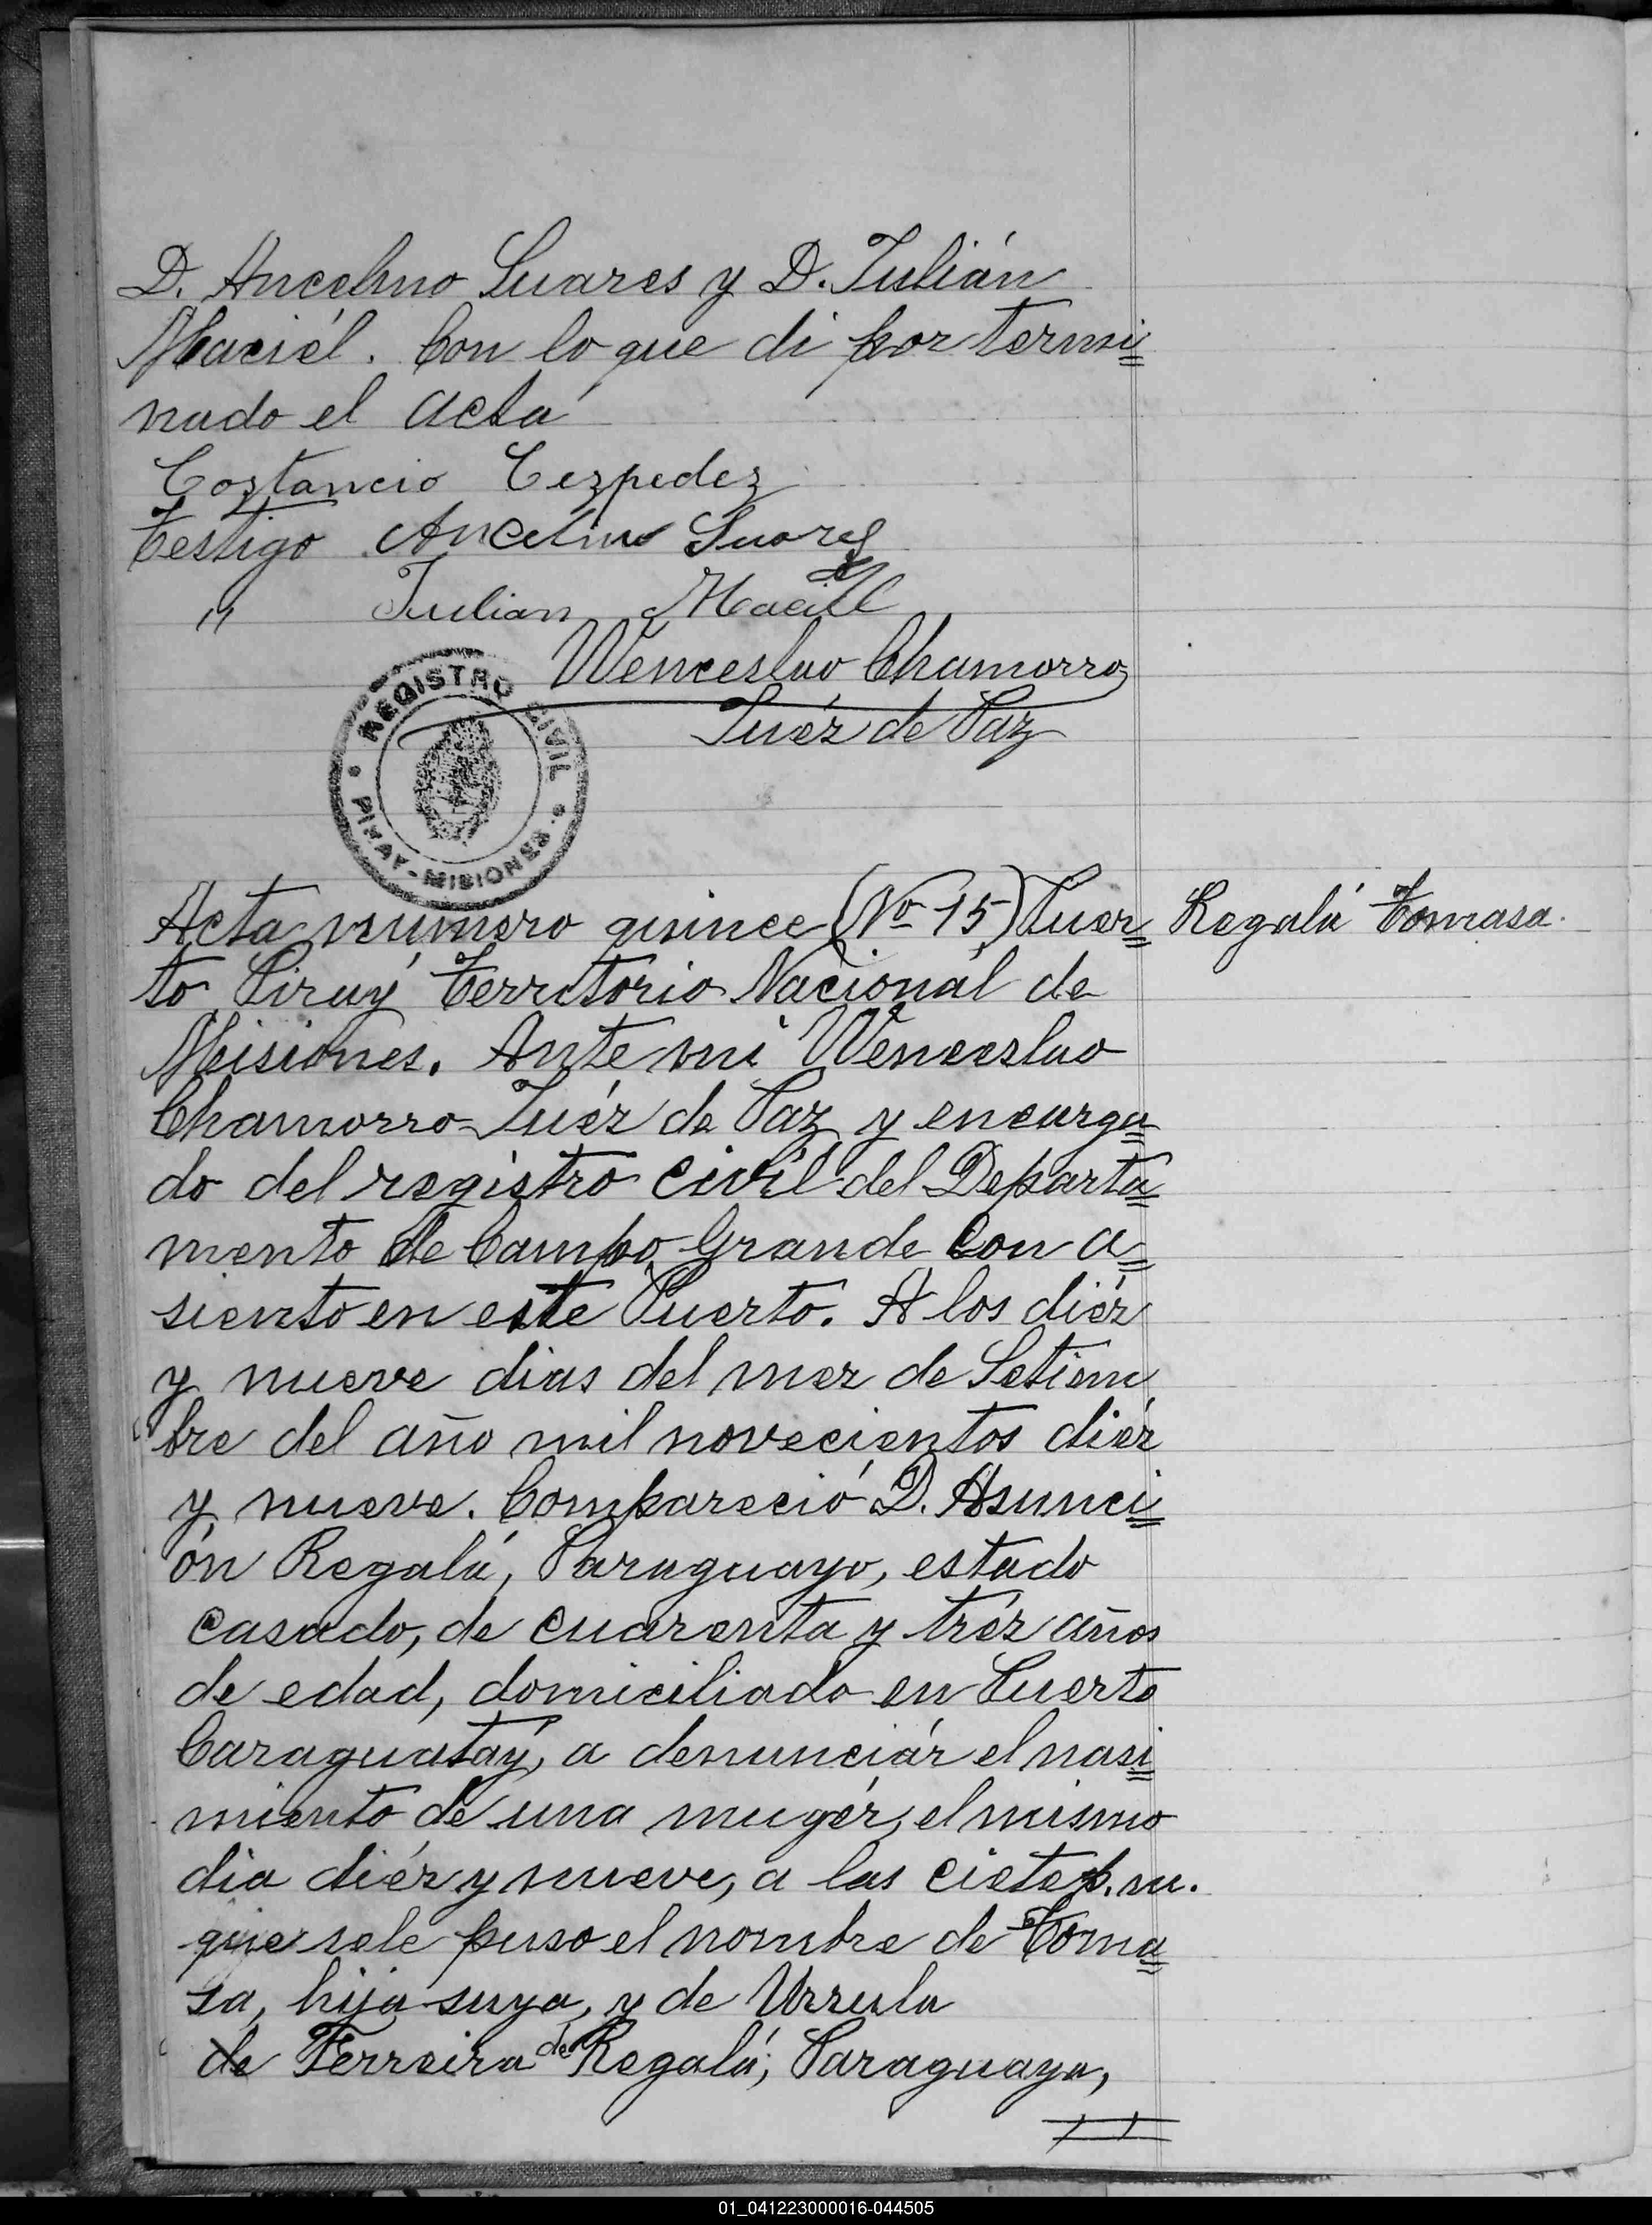 D. Ancelino Suares y D. Julián
Maciél. Con lo que di por termi=
nado el acta
Costancio Cezpedez
Testigo Ancelino Suares
" Julian Maciel
Wenceslao Chamorro
Juéz de Paz
REGISTRO CIVIL
PIRAY - MISIONES
Acta número quince (No 15) Puer= Regalá Tomasa.
to Piray Territorio Nacional de
Misiones. Ante mi Wenceslao
Chamorro Juéz de Paz y encarga=
do del registro civil del Departa=
mento de Campo Grande con a=
siento en este Puerto. A los diéz
y nueve dias del mez de Setiem
bre del año mil novecientos diéz
y nueve. Compareció D. Asunci=
ón Regalá, Paraguayo, estado
casado, de cuarenta y tréz años
de edad, domiciliado en Puerto
Caraguatay, a denunciár el nasi=
miento de una mugér, el mismo
dia diéz y nueve, a las ciete p.m.
que sele puso el nombre de Toma=
sa, hija suya, y de Urzula
de Ferreira de Regalá, Paraguaya,
01_041223000016-044505